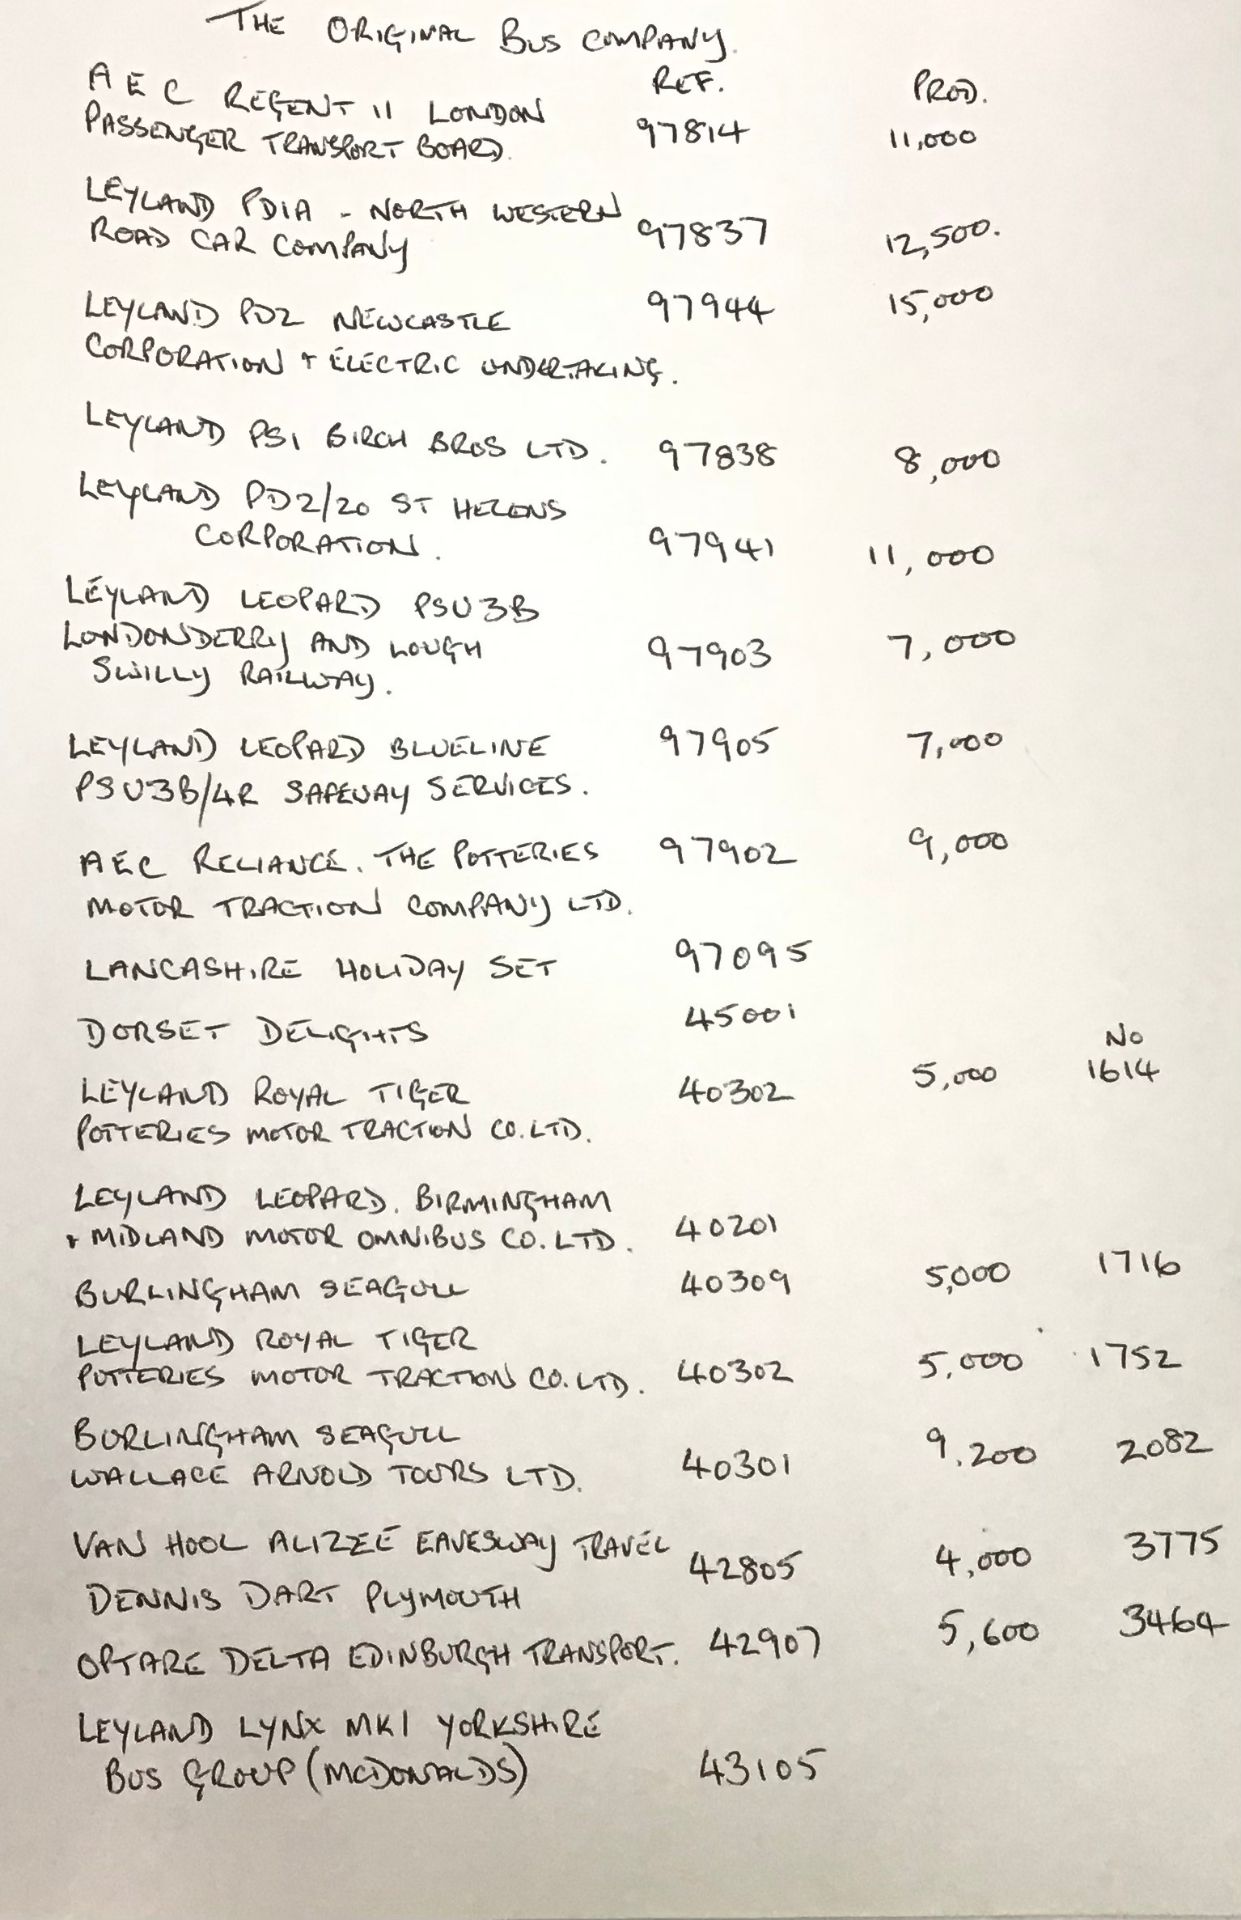 THE ORIGINAL BUS COMPANY.
REF. PROD.
AEC REGENT 11 LONDON
PASSENGER TRANSPORT BOARD. 97814 11,000
LEYLAND PD1A - NORTH WESTERN
ROAD CAR COMPANY 97837 12,500.
LEYLAND PD2 NEWCASTLE 97944 15,000
CORPORATION + ELECTRIC UNDERTAKING.
LEYLAND PS1 BIRCH BROS LTD. 97838 8,000
LEYLAND PD2/20 ST HELENS
CORPORATION. 97941 11,000
LEYLAND LEOPARD PSU3B
LONDONDERRY AND LOUGH 97903 7,000
SWILLY RAILWAY.
LEYLAND LEOPARD BLUELINE 97905 7,000
PSU3B/4R SAFEWAY SERVICES.
AEC RELIANCE. THE POTTERIES 97902 9,000
MOTOR TRACTION COMPANY LTD.
LANCASHIRE HOLIDAY SET 97095
DORSET DELIGHTS 45001
No
LEYLAND ROYAL TIGER 40302 5,000 1614
POTTERIES MOTOR TRACTION CO. LTD.
LEYLAND LEOPARD. BIRMINGHAM
+ MIDLAND MOTOR OMNIBUS CO. LTD. 40201
BURLINGHAM SEAGULL 40309 5,000 1716
LEYLAND ROYAL TIGER
POTTERIES MOTOR TRACTION CO. LTD. 40302 5,000 1752
BURLINGHAM SEAGULL
WALLACE ARNOLD TOURS LTD. 40301 9.200 2082
VAN HOOL ALIZEE EAVESWAY TRAVEL 42805 4,000 3775
DENNIS DART PLYMOUTH
OPTARE DELTA EDINBURGH TRANSPORT. 42907 5,600 3464
LEYLAND LYNX MK1 YORKSHIRE
BUS GROUP (MCDONALDS) 43105